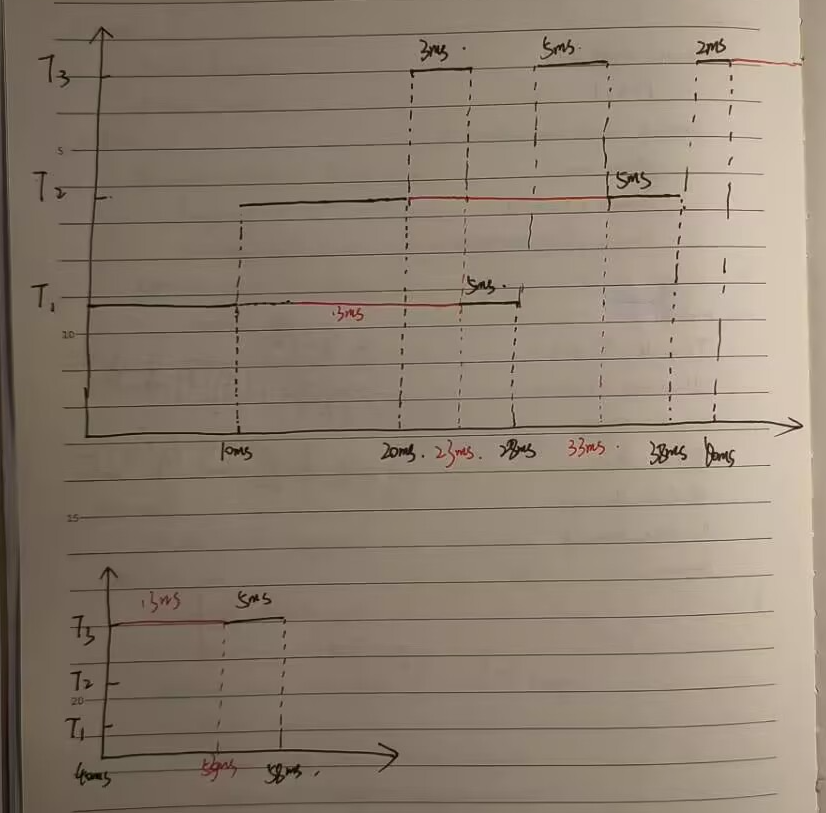 3ms. 5ms. 2ms
T3
5
T2 5ms
T1 5ms.
13ms
10
10ms 20ms. 23ms. 28ms 33ms. 38ms 40ms
15
13ms 5ms
T3
T2
20
T1
40ms 53ms 58ms.